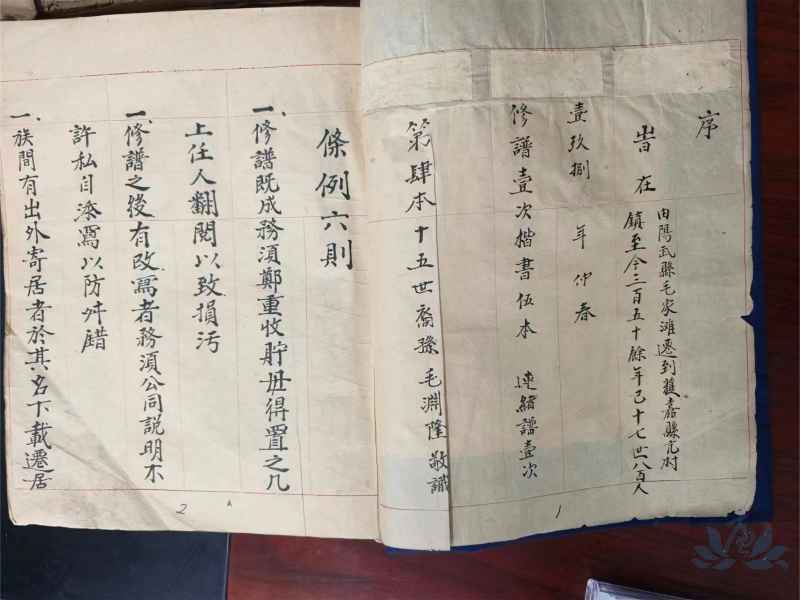 序
昔在
由陽武縣毛家灘遷到獲嘉縣亢村
鎮至今三百五十餘年已十七世八百人
壹玖捌 年 仲春
修譜壹次楷書伍本 連續譜壹次
第肆本十五世裔孫毛淵隆敬識
1
條例六則
一、修譜既成務須鄭重收貯毋得置之几
上任人翻閱以致損污
一、修譜之後有改寫者務須公同説明不
許私自添寫以防舛錯
一、族間有出外寄居者於其名下載遷居
2